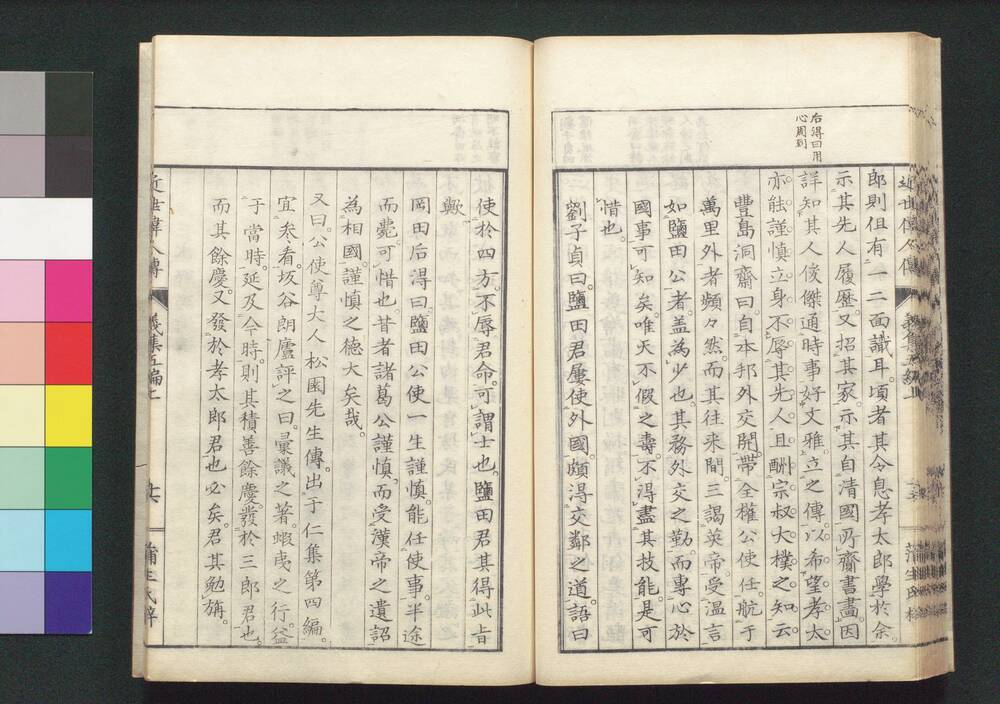 右得曰用
心周到
郎則但有一二面識耳頃者其令息孝太郎學於余
示其先人履歷又招其家示其自清國所齎書畫因
詳知其人俊傑通時事好文雅立之傳以希望孝太
亦能謹慎立身不辱其先人且酬宗叔大樸之知云
豐島洞齋曰自本邦外交開帶全權公使任航于
萬里外者頻々然而其往來間三謁英帝受温言
如鹽田公者蓋為少也其務外交之勤而專心於
國事可知矣唯天不假之壽不得盡其技能是可
惜也
劉子貞曰鹽田君屢使外國頗得交鄰之道語曰
近世偉人傳
義集五編
蒲生氏梓
使於四方不辱君命可謂士也鹽田君其得此旨
歟
岡田后得曰鹽田公使一生謹慎能任使事半途
而薨可惜也昔者諸葛公謹慎而受漢帝之遺詔
為相國謹慎之德大矣哉
又曰公使尊大人松園先生傳出于仁集第四編
宜參看坂谷朗廬評之曰彙議之著蝦夷之行益
于當時延及今時則其積善餘慶發於三郎君也
而其餘慶又發於孝太郎君也必矣君其勉旃
近世偉人傳
義集五編
蒲生氏梓